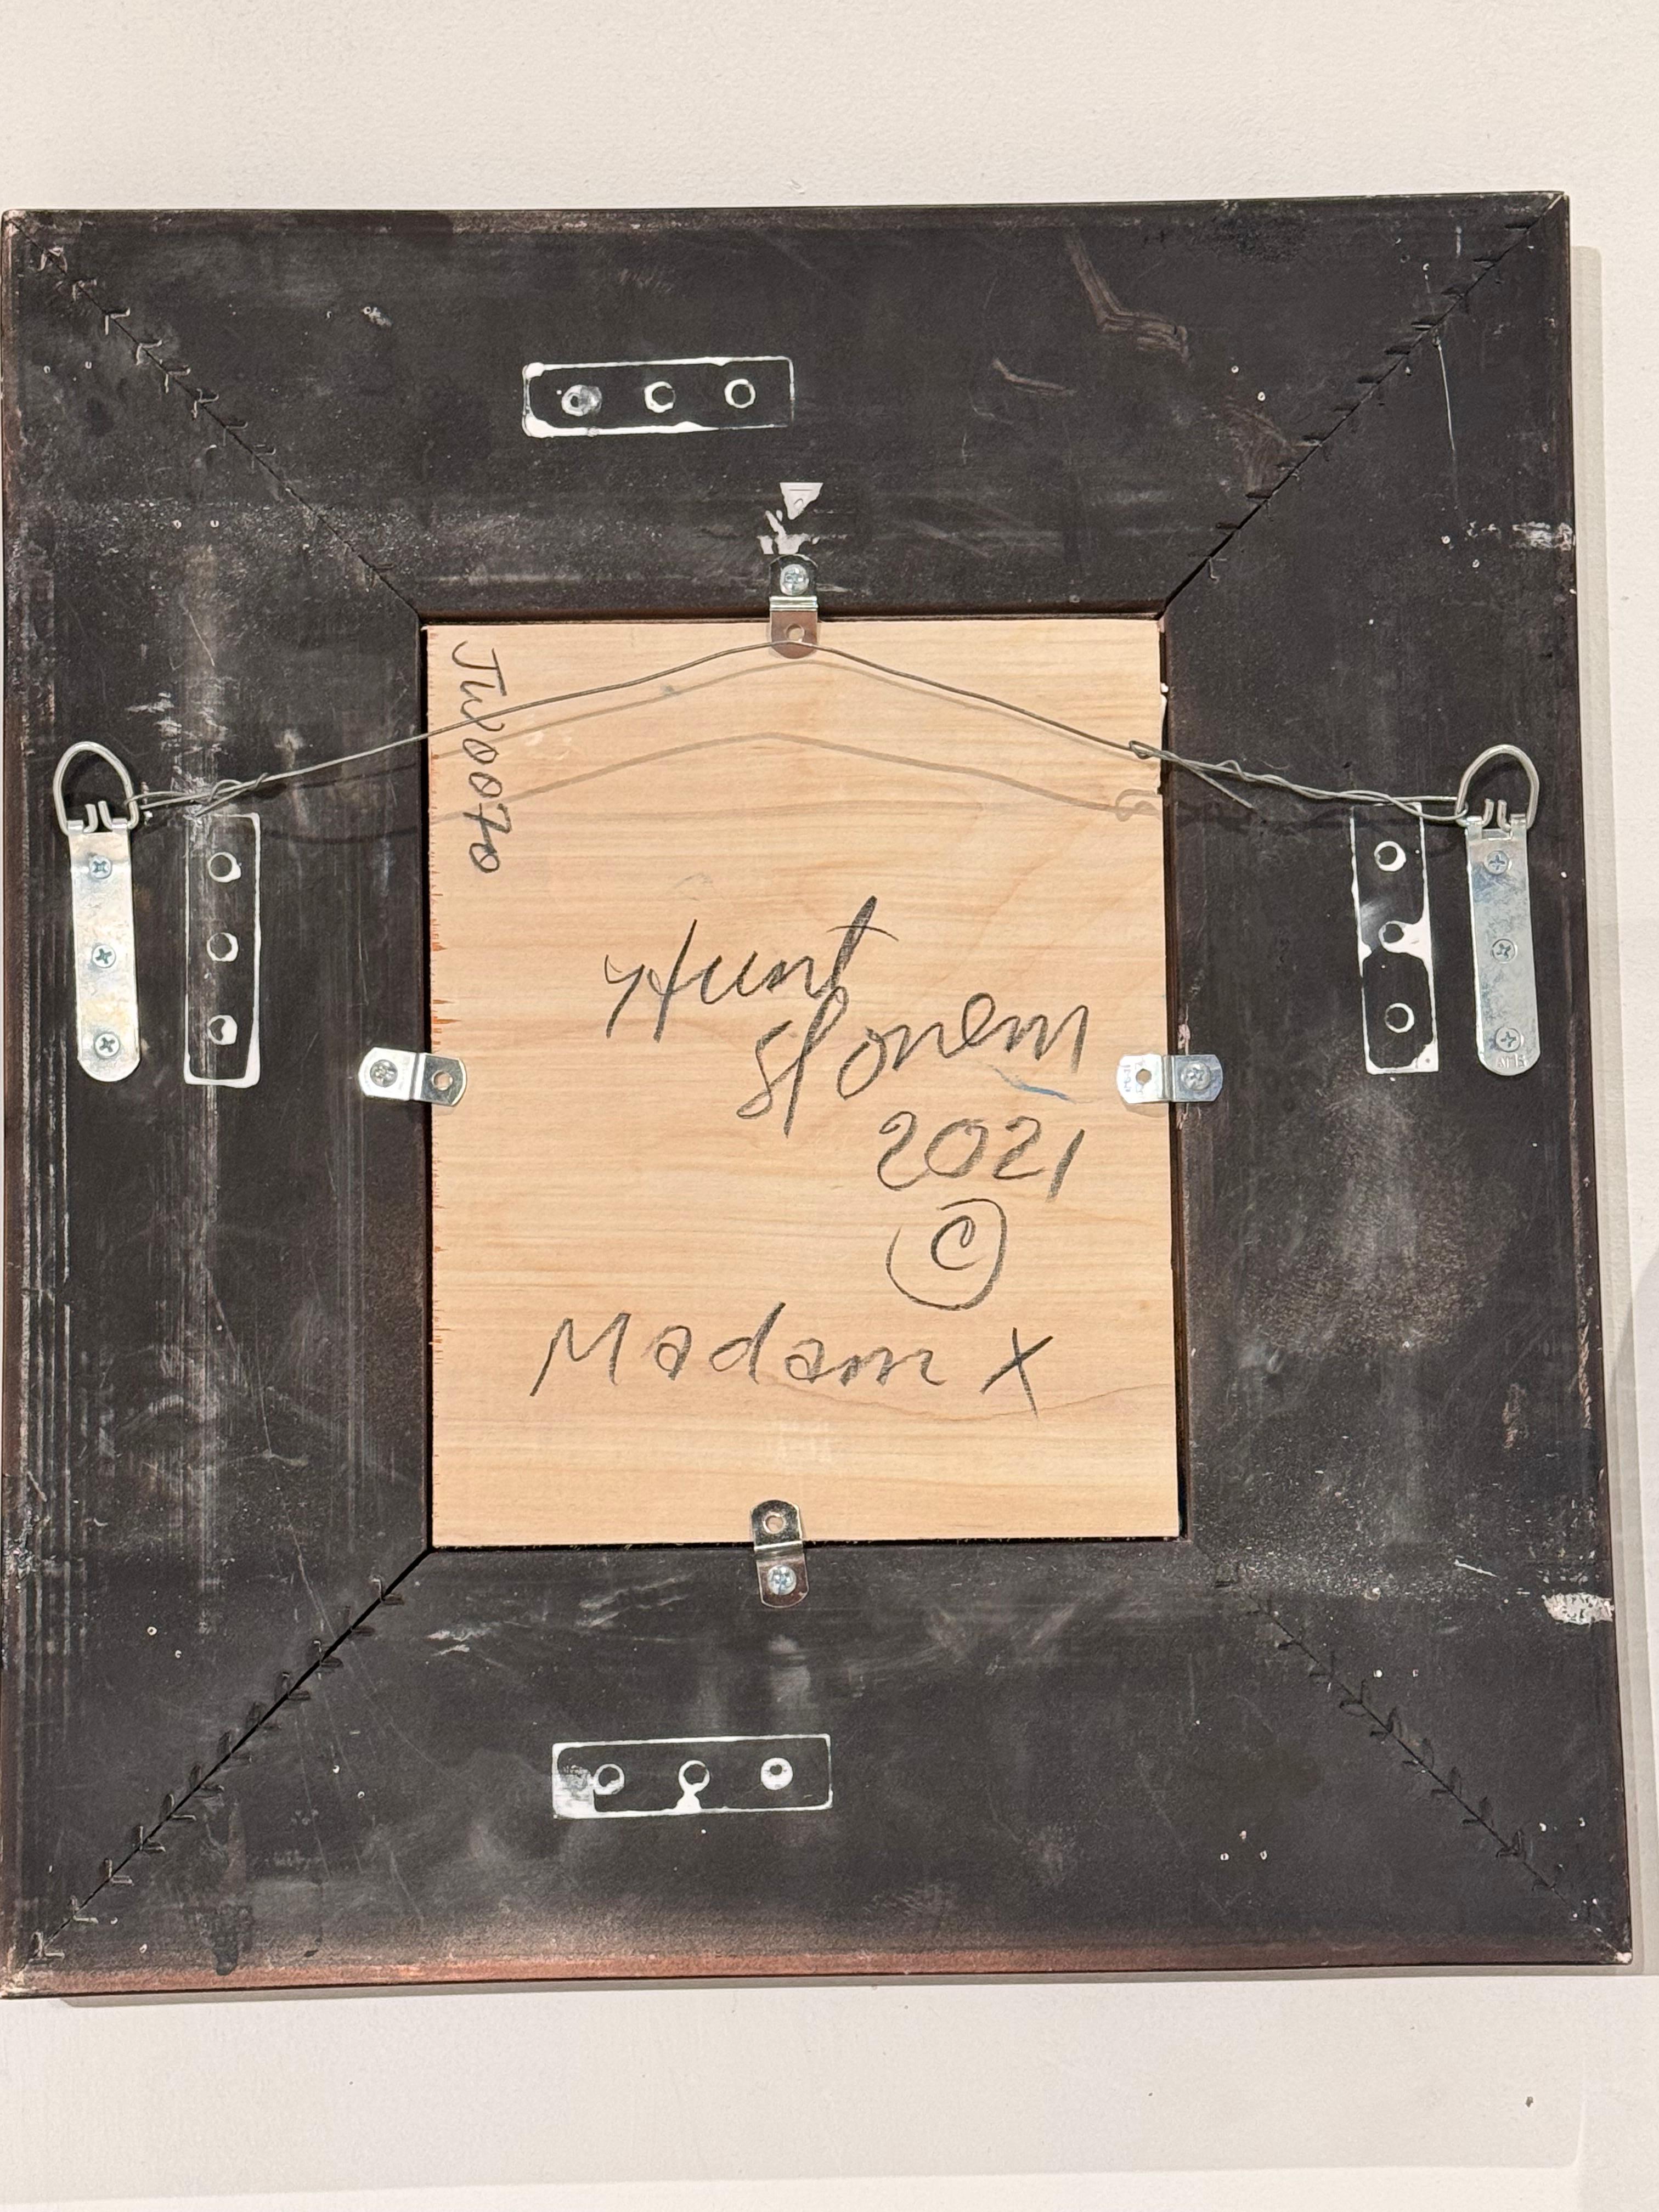 JW0070
Hunt
Slonem
2021
©
Madam X